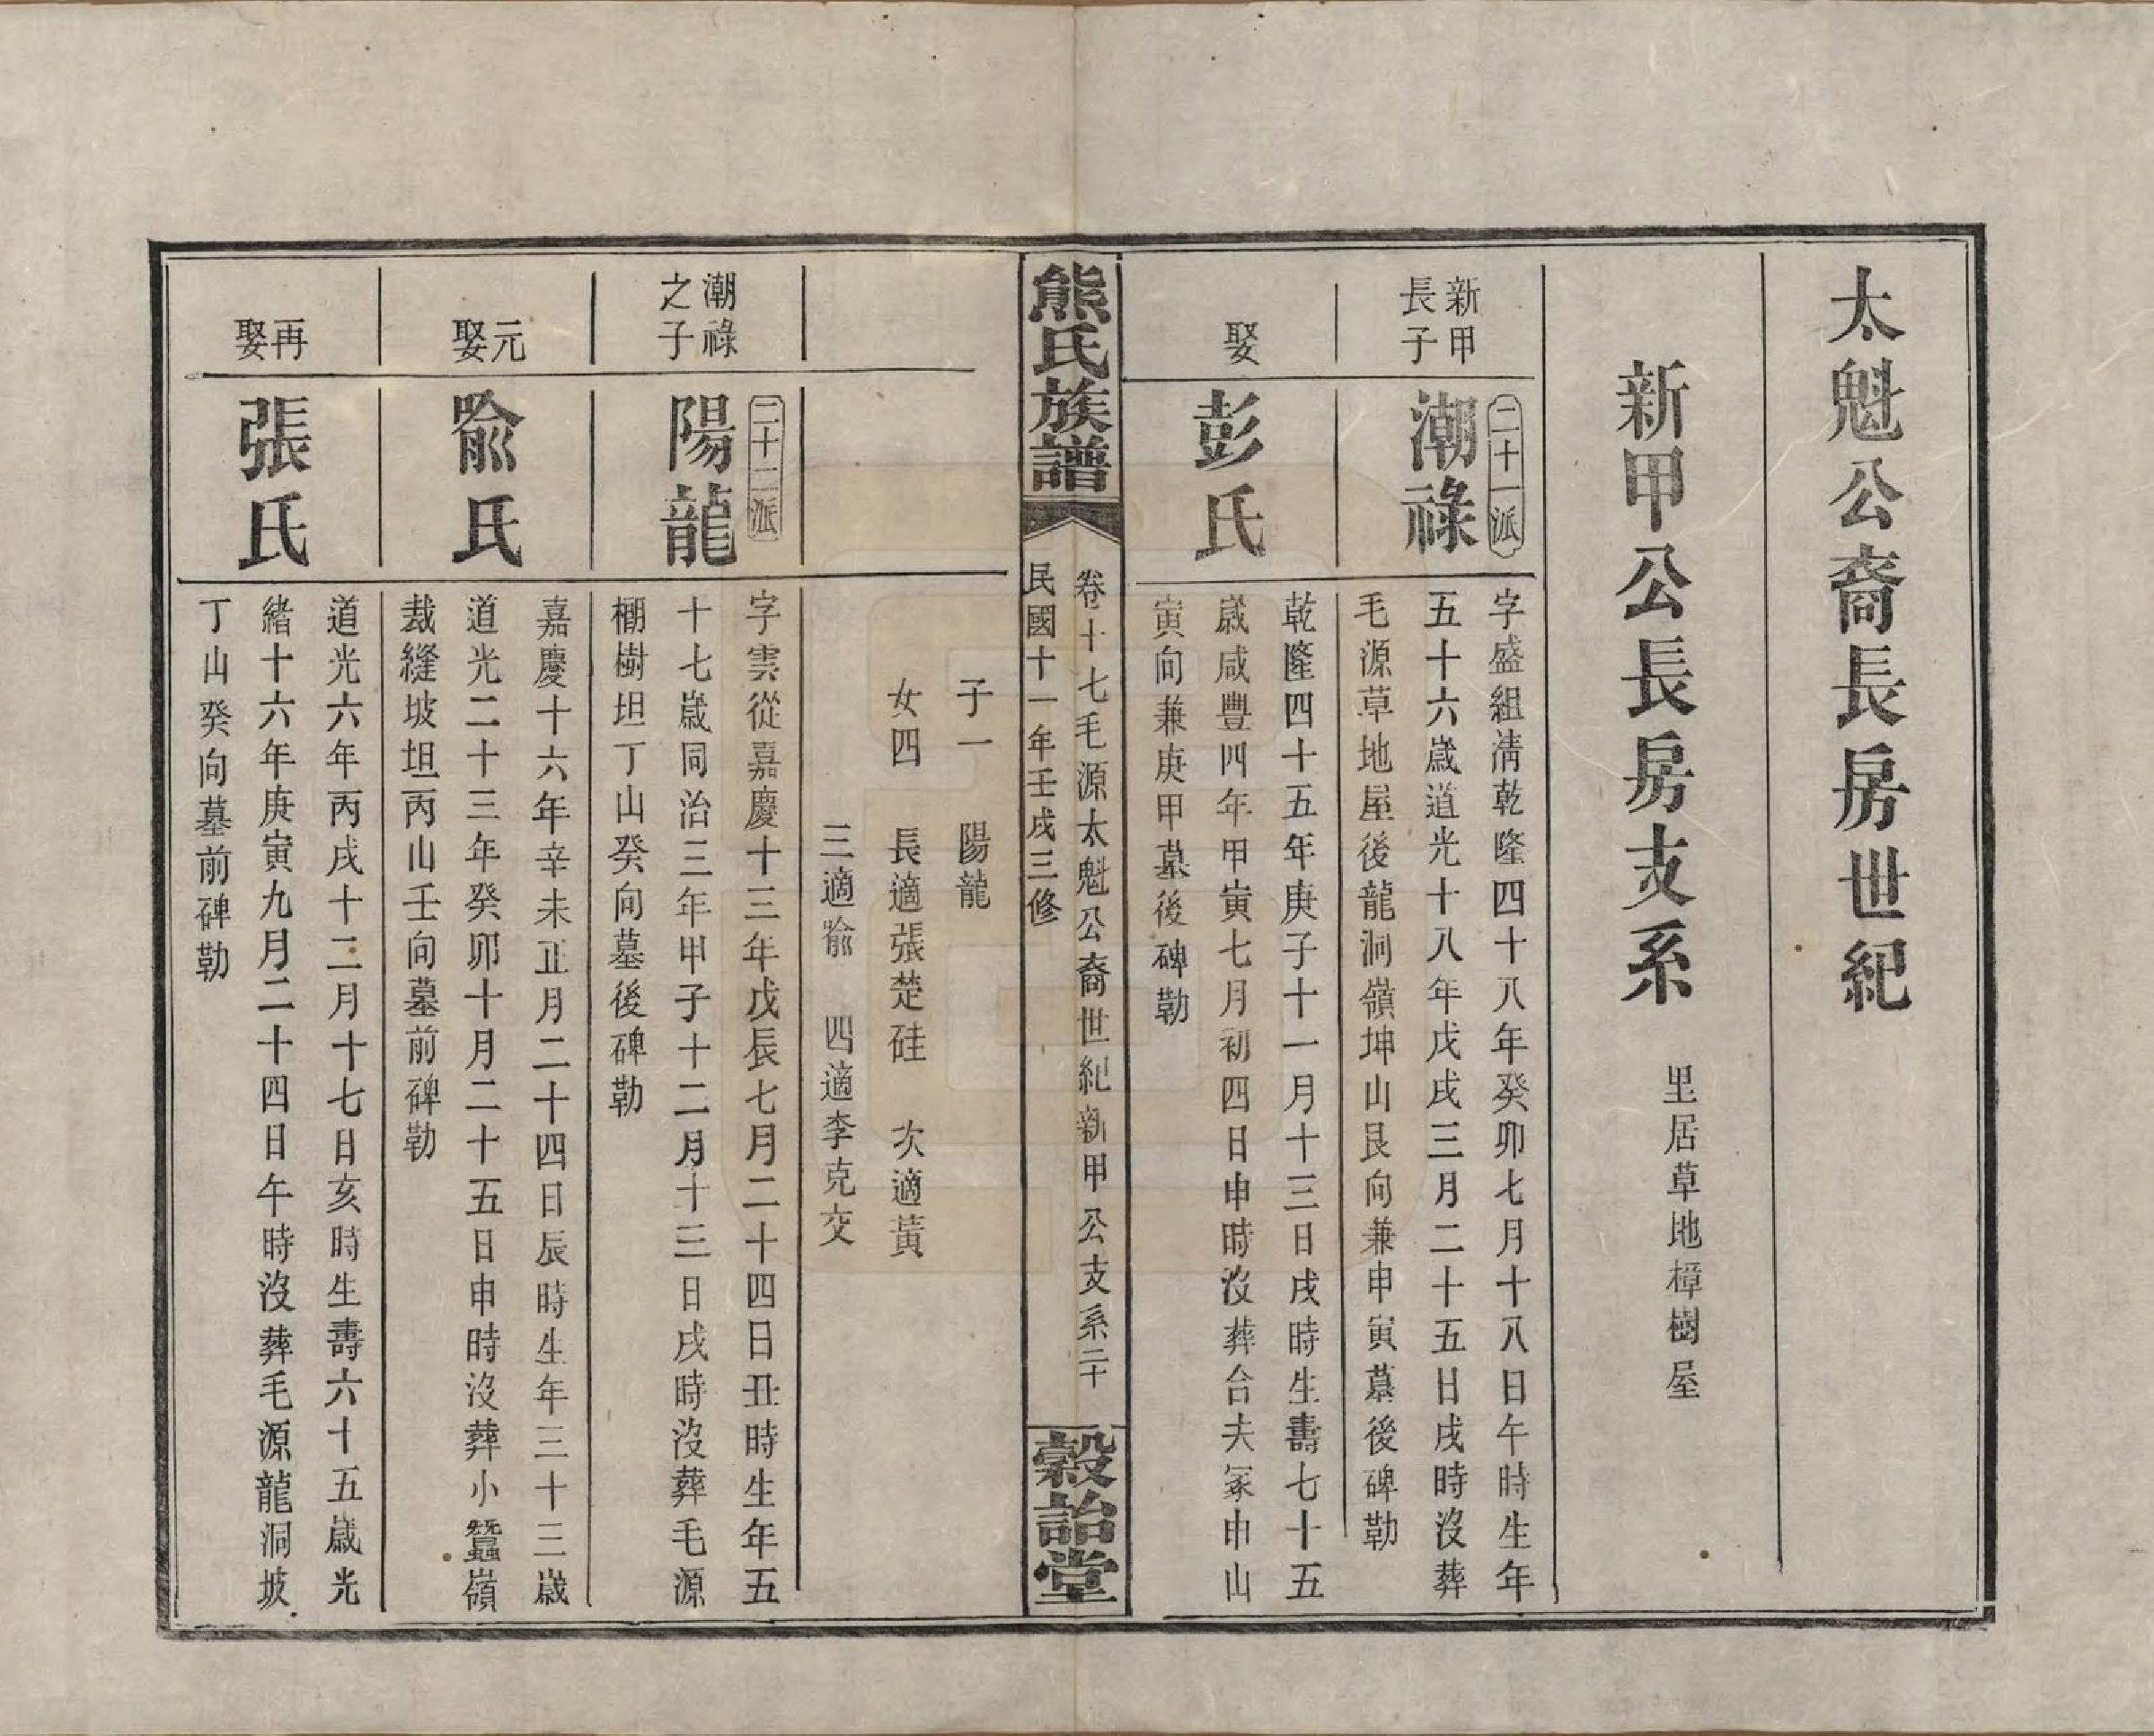 太魁公裔長房世紀
新甲公長房支系
里居草地樟樹屋
新甲
長子
二十一派
潮祿
字盛組清乾隆四十八年癸卯七月十八日午時生年
五十六歲道光十八年戊戌三月二十五日戌時沒葬
毛源草地屋後龍洞嶺坤山艮向兼申寅墓後碑勒
娶
彭氏
乾隆四十五年庚子十一月十三日戌時生壽七十五
歲咸豐四年甲寅七月初四日申時沒葬台夫冢申山
寅向兼庚甲墓後碑勒
熊氏族譜
卷十七毛源太魁公裔世紀新甲公支系二十
民國十一年壬戌三修
穀詒堂
子一 陽龍
女四 長適張楚硅 次適黃
三適喻 四適李克交
潮祿
之子
二十二派
陽龍
字雲從嘉慶十三年戊辰七月二十四日丑時生年五
十七歲同治三年甲子十二月十三日戌時沒葬毛源
棚樹坦丁山癸向墓後碑勒
元
娶
喻氏
嘉慶十六年辛未正月二十四日辰時生年三十三歲
道光二十三年癸卯十月二十五日申時沒葬小蠶嶺
裁縫坡坦丙山壬向墓前碑勒
再
娶
張氏
道光六年丙戌十二月十七日亥時生壽六十五歲光
緒十六年庚寅九月二十四日午時沒葬毛源龍洞坡
丁山癸向墓前碑勒